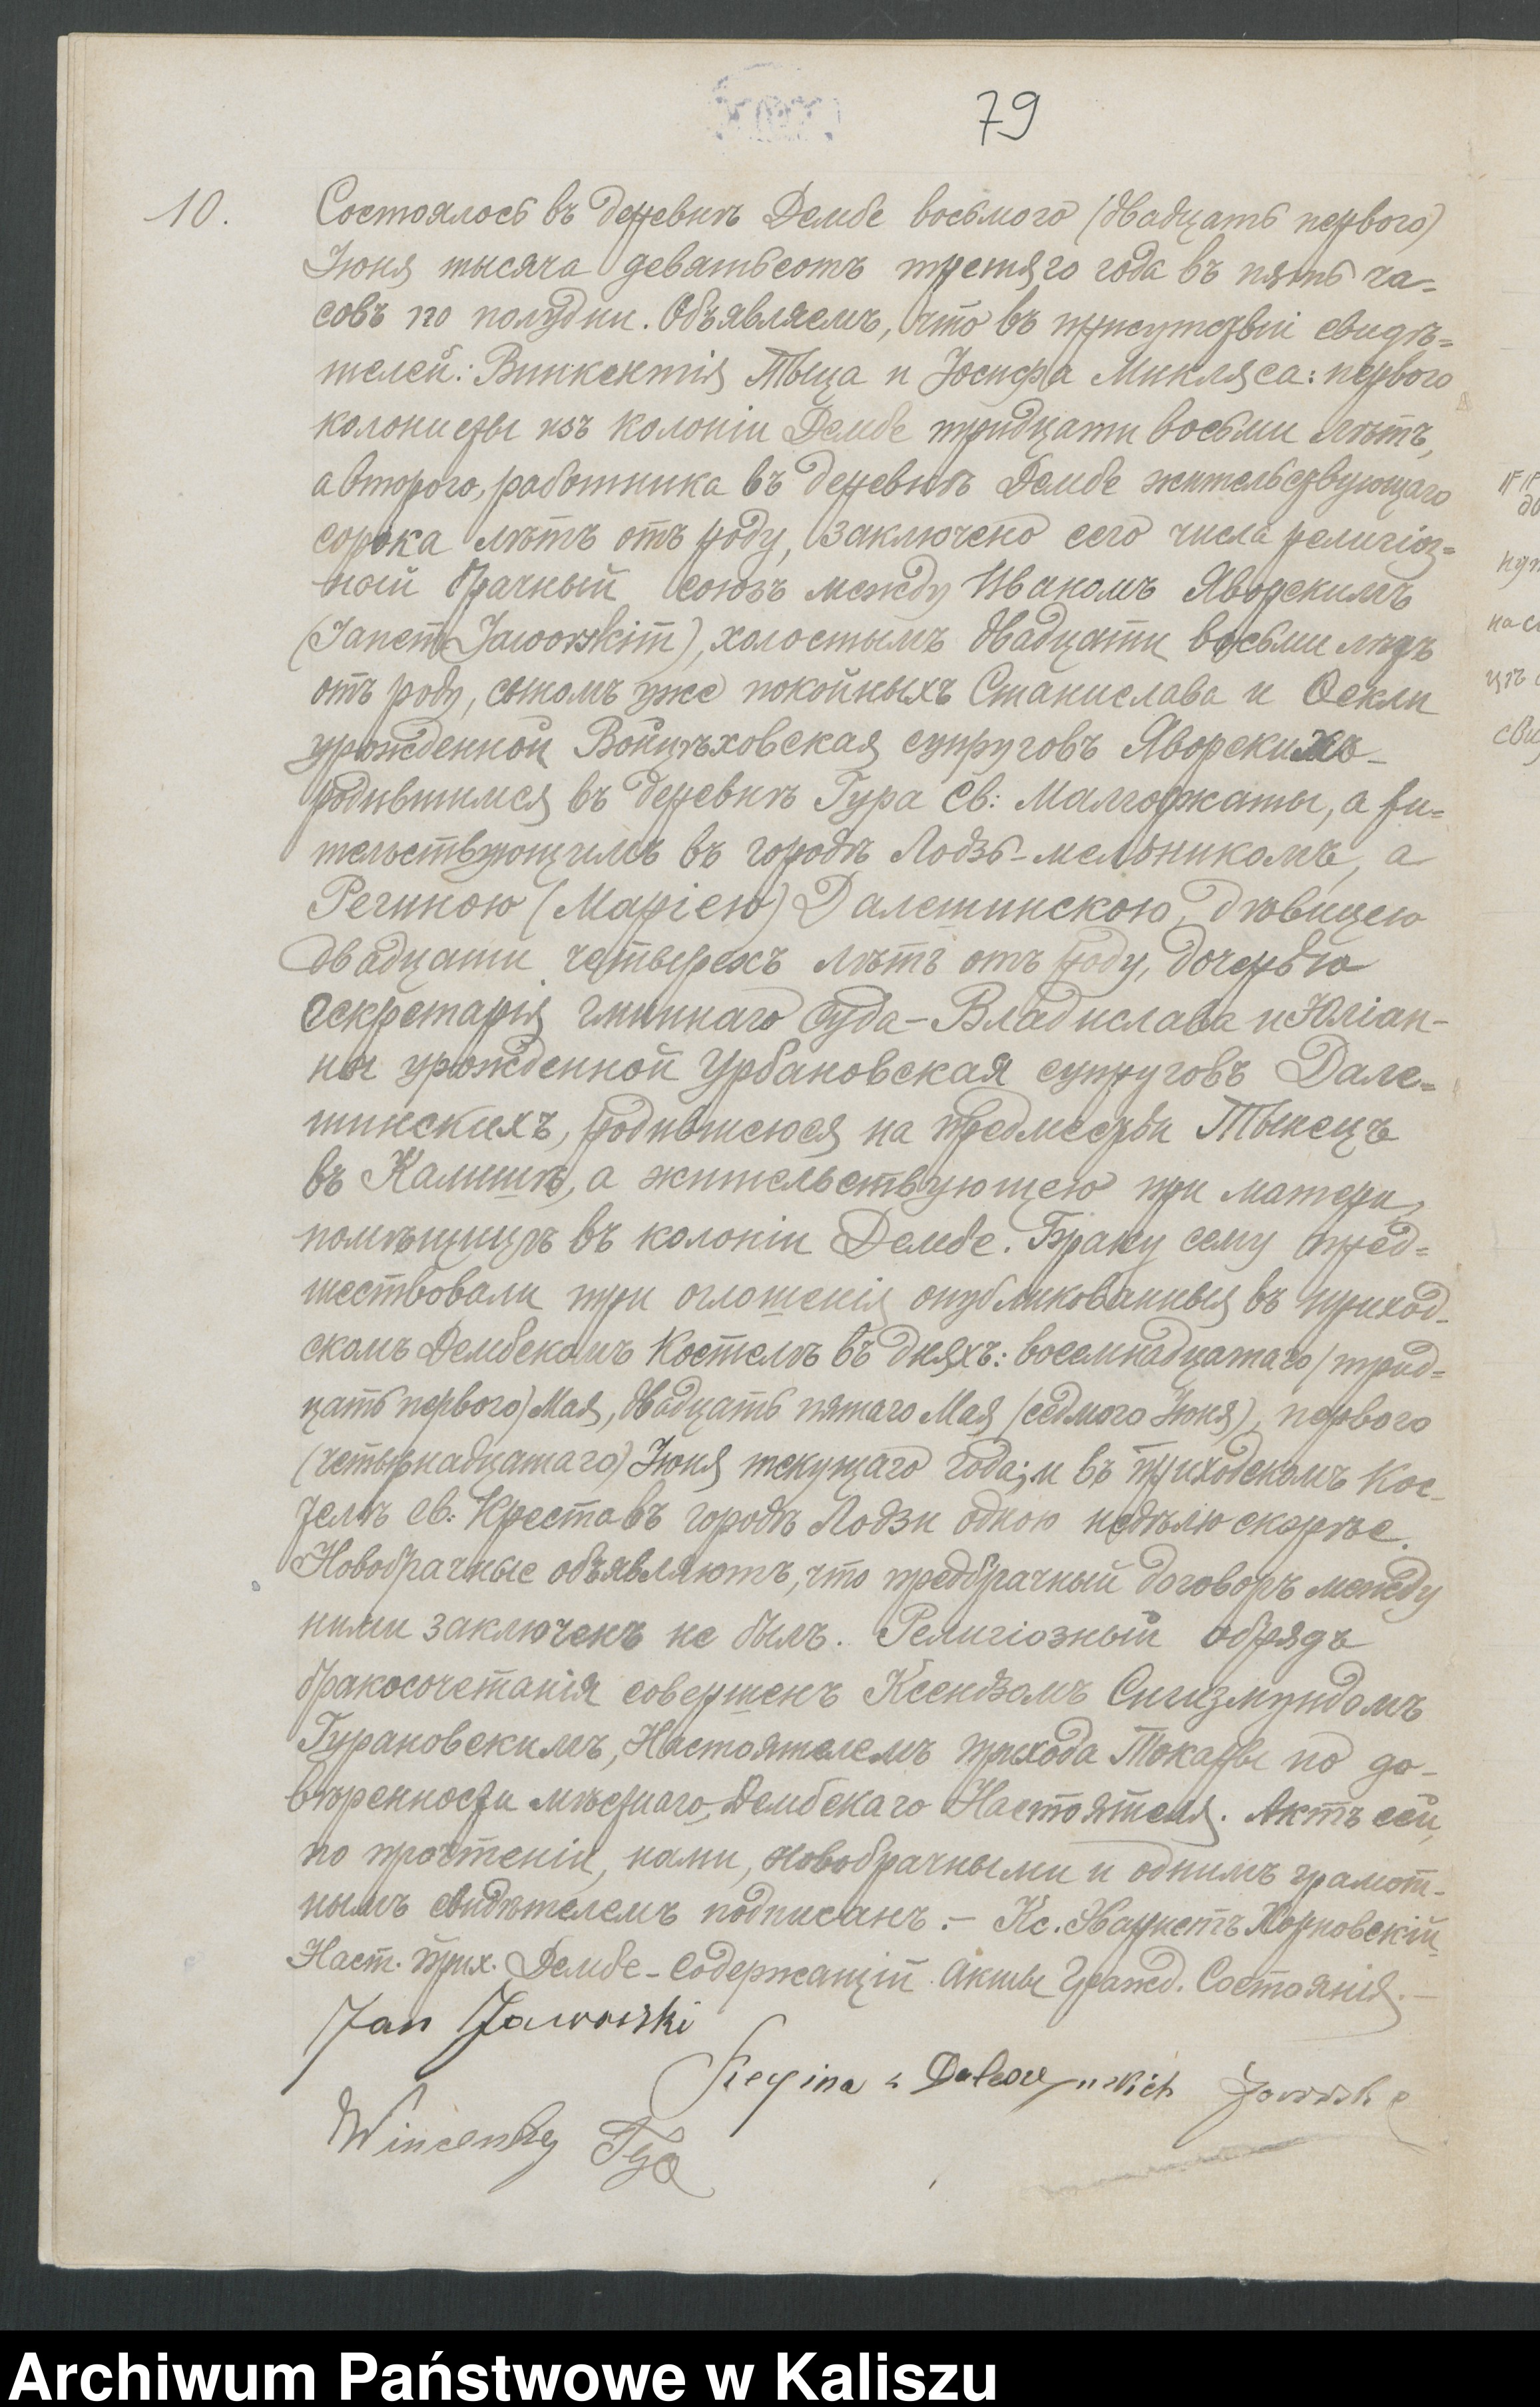 79
10.
Состоялось въ деревнѣ Дембе восьмого (двадцать первого)
Іюня тысяча девятьсотъ третяго года въ пять ча=
совъ по полудни. Объявляемъ, что въ присутствіи свидѣ=
телей: Викентія Тыца и Іосифа Микляса: первого
колонисты изъ колоніи Дембе тридцати восьми лѣтъ,
а второго, работника въ деревнѣ Дембе жительствующаго
сорока лѣтъ отъ роду, заключено сего числа религіоз=
ный брачный союзъ между Иваномъ Яворскимъ
(Janem Jaworskim), холостымъ двадцати восьми лѣтъ
отъ роду, сыномъ уже покойныхъ Станислава и Ѳекли
урожденной Войцѣховская супруговъ Яворскихъ-
родившимся въ деревнѣ Гура Св: Малгоржаты, а жи=
тельствующимъ въ городѣ Лодзь-мельникомъ, а
Региною (Маріею) Далешинскою, дѣвицею
двадцати четырехъ лѣтъ отъ роду, дочерью
секретарія гминнаго суда-Владислава и Юліан-
ны урожденной Урбановская супруговъ Дале=
шинскихъ, родившеюся на предместьи Тынецъ
въ Калишѣ, а жительствующею при матери,
помѣщицѣ въ колоніи Дембе. Браку сему пред=
шествовали три оглошенія опубликованныя въ приход-
скомъ Дембскомъ Костелѣ въ дняхъ: восемнадцатаго (трид=
цать первого) Мая, двадцать пятаго Мая (седмого Іюня), первого
(четырнадцатаго) Іюня текущаго года; и въ приходскомъ Кос-
телѣ св: Креста въ городѣ Лодзи одною недѣлю скорѣе.
Новобрачные объявляютъ, что предбрачный договоръ между
ними заключенъ не былъ. Религіозный обрядъ
бракосочетанія совершенъ Ксендзомъ Сигизмундомъ
Гурановскимъ, Настоятелемъ прихода Токары по до-
вѣренности мѣстнаго, Дембскаго Настоятеля. Актъ сей,
по прочтеніи, нами, новобрачными и однимъ грамот-
нымъ свидѣтелемъ подписанъ.- Кс. Эваристъ Хорновскій
Наст. прих. Дембе-Содержащій Акты Гражд. Состоянія.-
Jan Jaworski
Regina z Daleszyńskich Jaworska
Wincenty Tyc
Archiwum Państwowe w Kaliszu